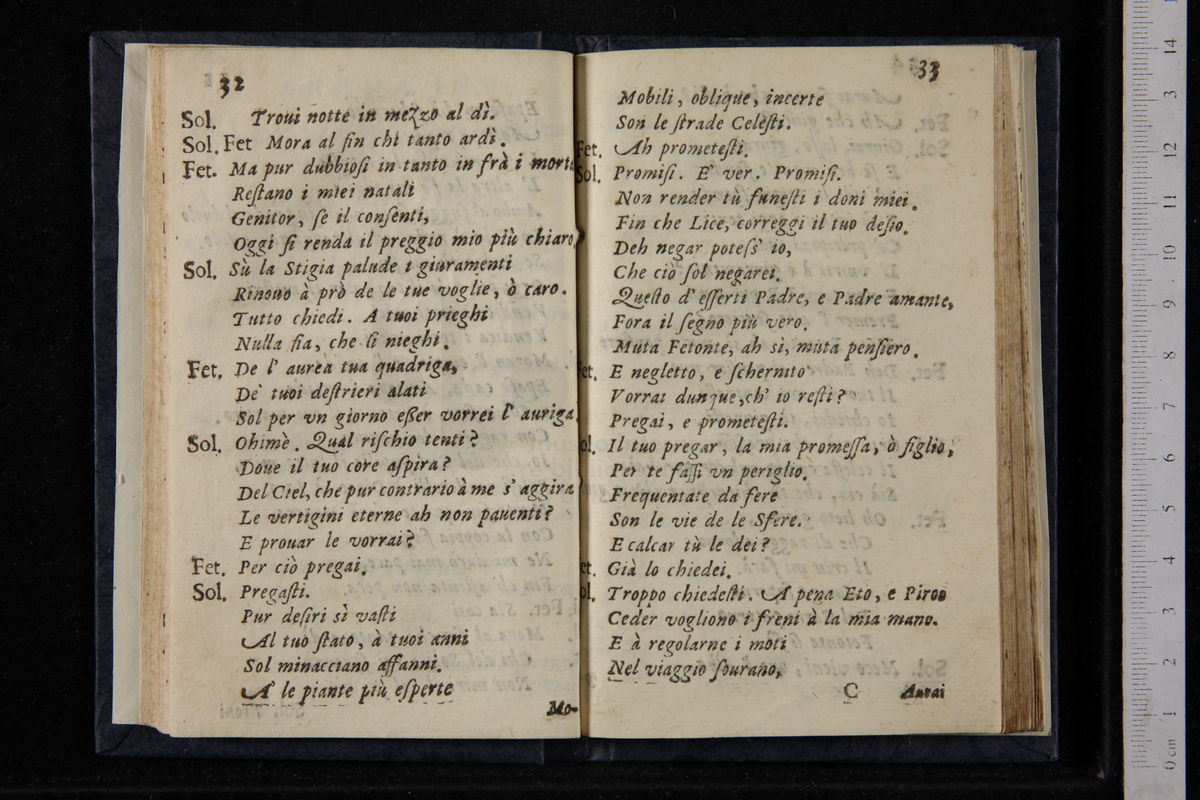 32
Sol. Troui notte in mezzo al dì.
Sol. Fet Mora al fin chi tanto ardì.
Fet. Ma pur dubbiosi in tanto in frà i morta
Restano i miei natali
Genitor, se il consenti,
Oggi si renda il preggio mio più chiaro,
Sol. Sù la Stigia palude i giuramenti
Rinouo à prò de le tue voglie, ò caro.
Tutto chiedi. A tuoi prieghi
Nulla fia, che si nieghi.
Fet. De l' aurea tua quadriga,
De' tuoi destrieri alati
Sol per vn giorno esser vorrei l' auriga
Sol. Ohimè. Qual rischio tenti?
Doue il tuo core aspira?
Del Ciel, che pur contrario à me s' aggira
Le vertigini eterne ah non pauenti?
E prouar le vorrai?
Fet. Per ciò pregai.
Sol. Pregasti.
Pur desiri sì vasti
Al tuo stato, à tuoi anni
Sol minacciano affanni.
A' le piante più esperte
Mo-
33
Mobili, oblique, incerte
Son le strade Celesti.
Fet. Ah prometesti.
Sol. Promisi. E' ver. Promisi.
Non render tù funesti i doni miei.
Fin che Lice, correggi il tuo desio.
Deh negar potess' io,
Che ciò sol negarei.
Questo d' esserti Padre, e Padre amante,
Fora il segno più vero.
Muta Fetonte, ah sì, muta pensiero.
Fet. E negletto, e schernito
Vorrai dunque, ch' io resti?
Pregai, e prometesti.
ol. Il tuo pregar, la mia promessa, ò figlio,
Per te fassi vn periglio.
Frequentate da fere
Son le vie de le Sfere.
E calcar tù le dei?
et. Già lo chiedei.
ol. Troppo chiedesti. A pena Eto, e Piroo
Ceder vogliono i freni à la mia mano.
E à regolarne i moti
Nel viaggio sourano,
C Aurai